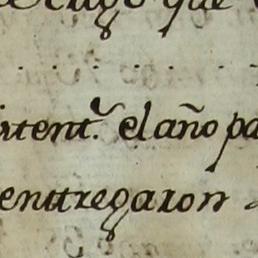 que
intent.ᵃ el año pa
enttregaron